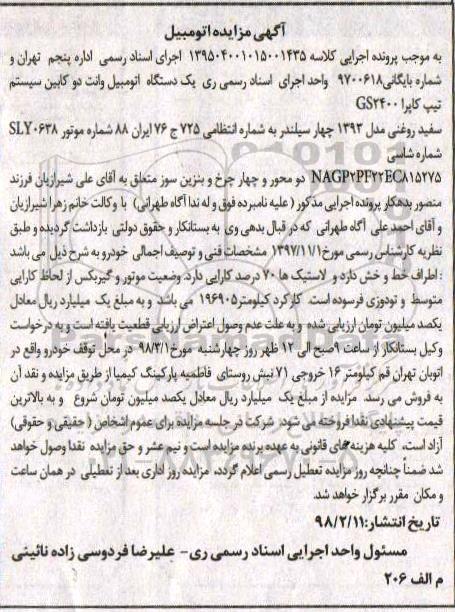 آگهی مزایده اتومبیل
به موجب پرونده اجرایی کلاسه ۱۳۹۵۰۴۰۰۱۰۱۵۰۰۱۴۳۵ اجرای اسناد رسمی اداره پنجم تهران و
شماره بایگانی۹۷۰۰۶۱۸ واحد اجرای اسناد رسمی ری یک دستگاه اتومبیل وانت دو کابین سیستم
تیپ کاپرا GS۲۴۰۰
سفید روغنی مدل ۱۳۹۳ چهار سیلندر به شماره انتظامی ۷۲۵ ج ۷۶ ایران ۸۸ شماره موتور SLY۰۶۳۸
شماره شاسی
NAGP۲PF۲۲EC۸۱۵۲۷۵ دو محور و چهار چرخ و بنزین سوز متعلق به آقای علی شیرازیان فرزند
منصور بدهکار پرونده اجرایی مذکور (علیه نامبرده فوق و له ندا آگاه طهرانی) با وکالت خانم زهرا شیرازیان
و آقای احمد علی آگاه طهرانی که در قبال بدهی وی به بستانکار و حقوق دولتی بازداشت گردیده و طبق
نظریه کارشناس رسمی مورخ ۱۳۹۷/۱۱/۱ مشخصات فنی و توصیف اجمالی خودرو به شرح ذیل می باشد
: اطراف خط و خش دارد و لاستیک ها ۷۰ درصد کارایی دارد. وضعیت موتور و گیربکس از لحاظ کارایی
متوسط و تودوزی فرسوده است. کارکرد کیلومتر۱۹۶۹۰۵ می باشد و به مبلغ یک میلیارد ریال معادل
یکصد میلیون تومان ارزیابی شده و به علت عدم وصول اعتراض ارزیابی قطعیت یافته است و به درخواست
وکیل بستانکار از ساعت ۹صبح الی ۱۲ ظهر روز چهارشنبه مورخ۹۸/۳/۱ در محل توقف خودرو واقع در
اتوبان تهران قم کیلومتر ۱۶ خروجی ۷۱ نبش روستای فاطمیه پارکینگ کیمیا از طریق مزایده و نقد آن
به فروش می رسد. مزایده از مبلغ یک میلیارد ریال معادل یکصد میلیون تومان شروع و به بالاترین
قیمت پیشنهادی نقدا فروخته می شود. شرکت در جلسه مزایده برای عموم اشخاص (حقیقی و حقوقی)
آزاد است. کلیه هزینه های قانونی به عهده برنده مزایده است و نیم عشر و حق مزایده نقدا وصول خواهد
شد ضمناً چنانچه روز مزایده تعطیل رسمی اعلام گردد، مزایده روز اداری بعد از تعطیلی در همان ساعت
و مکان مقرر برگزار خواهد شد.
تاریخ انتشار:۹۸/۲/۱۱
مسئول واحد اجرایی اسناد رسمی ری- علیرضا فردوسی زاده نائینی
م الف ۲۰۶